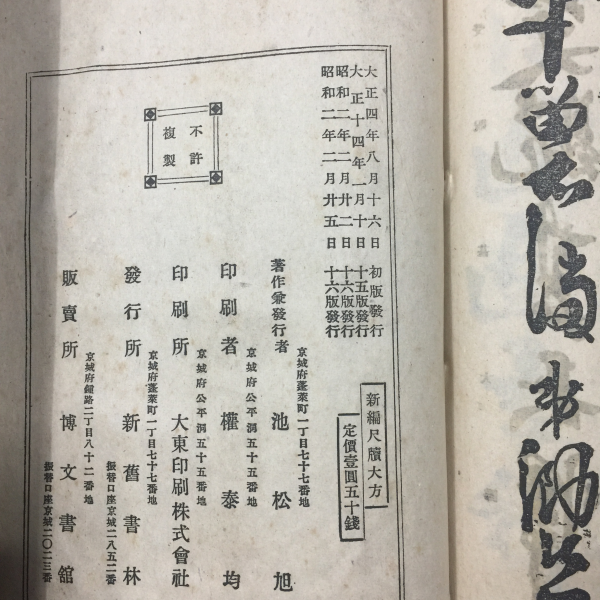 大正四年八月十六日 初版發行
大正十四年一月十日 十五版發行
昭和二年二月廿二日 十六版發行
昭和二年二月廿五日 十六版發行
不許
複製
新編尺牘大方
定價壹圓五十錢
京城府蓬萊町一丁目七十七番地
著作兼發行者 池松旭
京城府公平洞五十五番地
印刷者 權泰均
京城府公平洞五十五番地
印刷所 大東印刷株式會社
京城府蓬萊町一丁目七十七番地
發行所 新舊書林
振替口座京城二八五二番
京城府鍾路二丁目八十二番地
販賣所 博文書館
振替口座京城二〇二三番